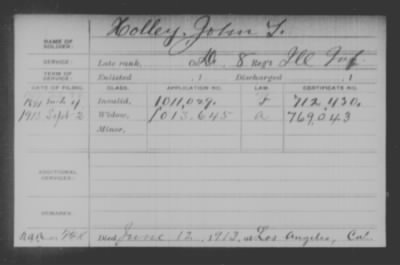 NAME OF SOLDIER: Holley, John L.
SERVICE: Late rank, Co. 8 Reg't Ill Inf.
TERM OF SERVICE: Enlisted , 1 Discharged , 1
DATE OF FILING. CLASS. APPLICATION NO. LAW. CERTIFICATE NO.
1891 Invalid, 1,011,029. 712,430.
1913 Sept 2 Widow, 1013,645 a 769,043
Minor,
ADDITIONAL SERVICES:
REMARKS:
Died June 12, 1913, at Los Angeles, Cal